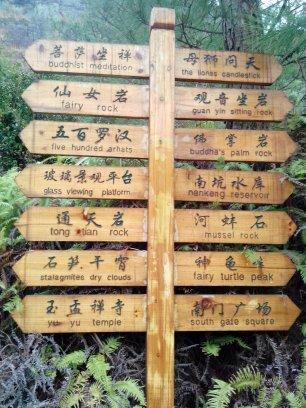 菩萨坐禅
buddhist meditation
仙女岩
fairy rock
五百罗汉
five hundred arhats
玻璃景观平台
glass viewing platform
通天岩
tong tian rock
石笋干霄
stalagmites dry clouds
玉盂禅寺
yu yu temple
母狮问天
the lionas candlestick
观音坐岩
guan yin sitting rock
佛掌岩
buddha's palm rock
南坑水库
nankeng reservoir
河蚌石
mussel rock
神龟峰
fairy turtle peak
南门广场
south gate square